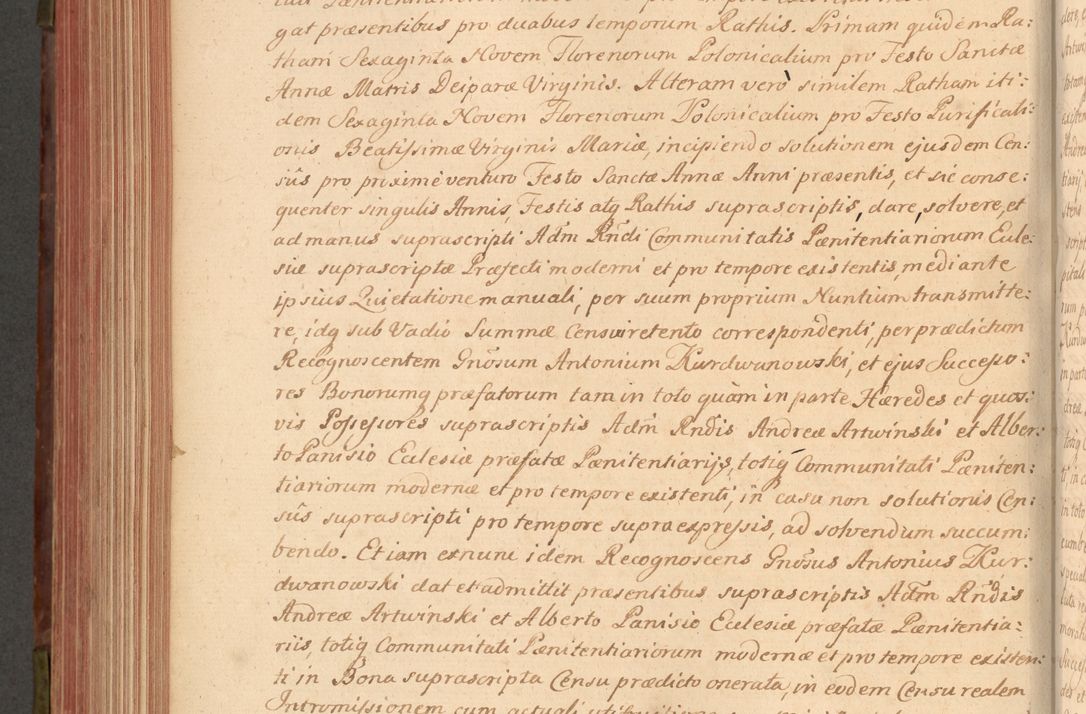 gat præsentibus pro duabus temporum Rathis. Primam quidem Ra:
tham Sexaginta Novem Florenorum Polonicalium pro Festo Sanctæ
Annæ Matris Deiparæ Virginis. Alteram verò similem Ratham iti:
dem Sexaginta Novem Florenorum Polonicalium pro Festo Purificati:
onis Beatissimæ Virginis Mariæ, incipiendo solutionem ejusdem Cen:
sûs pro proximè venturo Festo Sanctæ Annæ Anni præsentis, et sic conse:
quenter singulis Annis, Festis atq Rathis suprascriptis, dare, solvere, et
ad manus suprascripti Adm Rndi Communitatis Pænitentiariorum Eccle:
siæ suprascriptæ Præfecti moderni et pro tempore existentis, mediante
ipsius Quietatione manuali, per suum proprium Nuntium transmitte:
re, idq sub Vadio Summæ Censui retento correspondenti, per prædictum
Recognoscentem Gnosum Antonium Kurdwanowski, et ejus Successo:
res Bonorumq præfatorum tam in toto quàm in parte Hæredes et quos:
vis Possessores suprascriptis Adm Rndis Andreæ Artwinski et Alber:
to Panisio Ecclesiæ præfatæ Pænitentiarijs, totiq Communitati Pæniten:
tiariorum modernæ et pro tempore existenti, in casu non solutionis Cen:
sûs suprascripti pro tempore supra expressis, ad solvendum succum:
bendo. Etiam exnunc idem Recognoscens Gnosus Antonius Kur:
dwanowski dat et admittit præsentibus suprascriptis Adm Rndis
Andreæ Artwinski et Alberto Panisio Ecclesiæ præfatæ Pænitentia:
riis, totiq Communitati Pænitentiariorum modernæ et pro tempore existen:
ti in Bona suprascripta Censu prædicto onerata, in eodem Censu realem
Intromissionem cum actuali